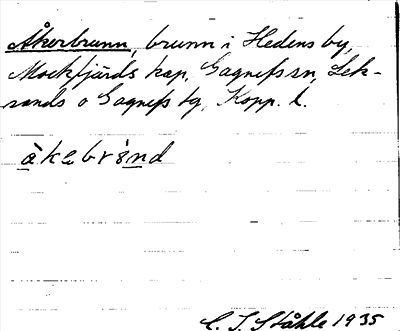 Åkerbrunn, brunn i Hedens by,
Mockfjärds kap. Gagnefs sn, Lek-
sands o Gagnefs tg, Kopp. l.
àkebrònd
C. I. Ståhle 1935